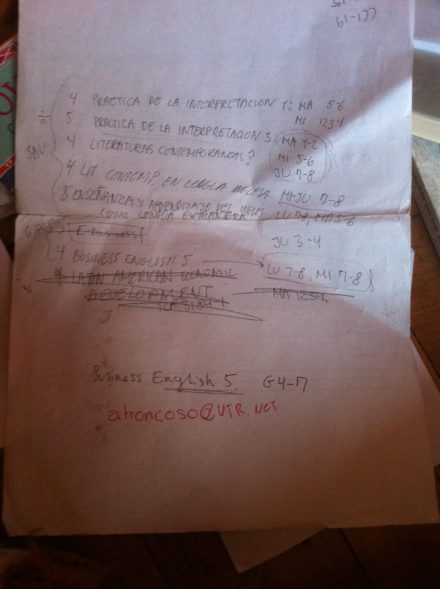 CC1-19
4 PRACTICA DE LA INTERPRETACION 1: MA 5-6
MI 1234
5 PRACTICA DE LA INTERPRETACION 3: MA 1-2
4 LITERATURAS CONTEMPORANEAS? MI 5-6
JU 7-8
4 LIT. CONTEMP. EN LENGUA INGLESA MI-JU 7-8
8 ENSEÑANZA Y APRENDIZAJE DEL INGLES
COMO LENGUA EXTRANJERA LU 7-8, MA 5-6
JU 3-4
E-Business
4 BUSINESS ENGLISH 5 LU 7-8, MI 7-8
4 LATIN AMERICAN ECONOMIC
DEVELOPMENT
Business English 5 G4-17
ahoncoso@VTR.NET